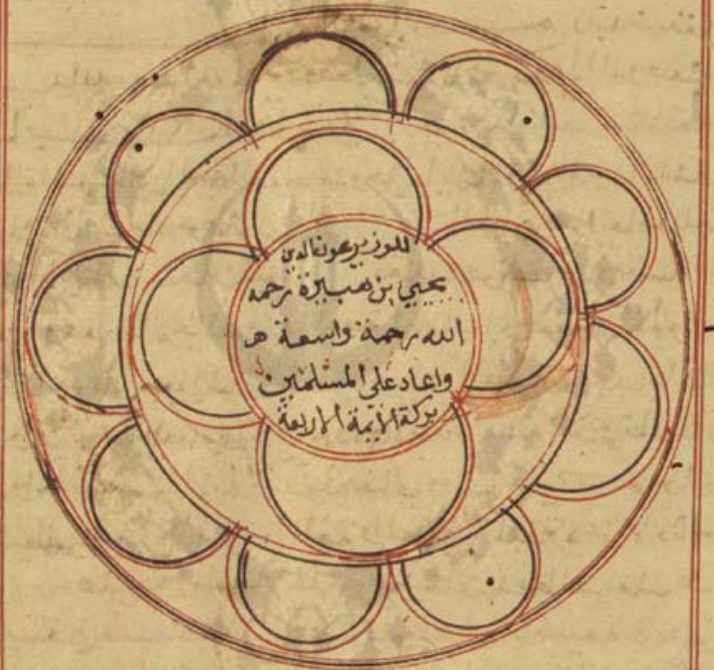 للوزير عون الدين
يحيي بن هبيرة رحمه
الله رحمة واسعة هـ
واعاد على المسلمين
بركة الايمة الاربعة